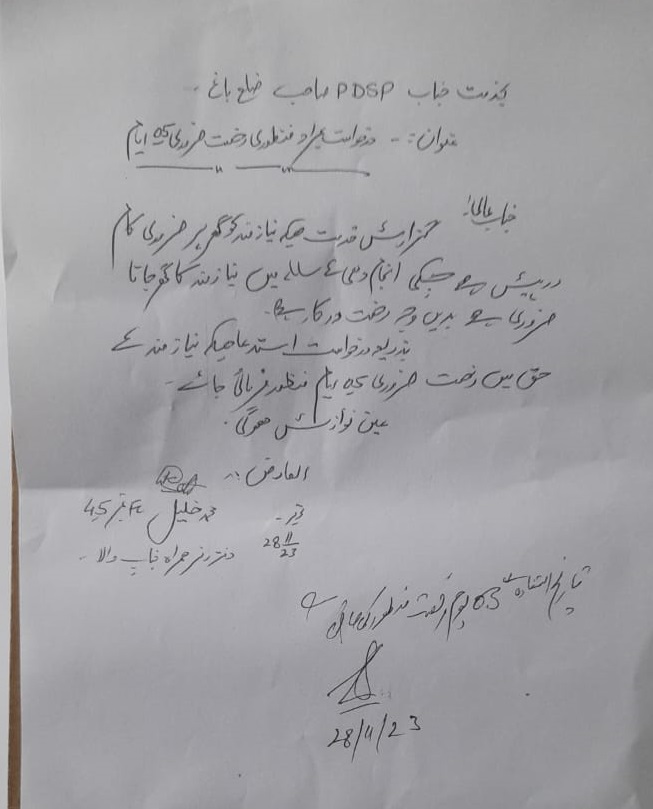 بخدمت جناب PDSP صاحب ضلع باغ ۔
عنوان:۔ درخواست بمراد منظوری رخصت ضروری 05 ایام
جناب عالی!
گزارش خدمت ہیکہ نیازمند کو گھر پر ضروری کام
درپیش ہے جسکی انجام دہی کے سلسلے میں نیازمند کا گھر جانا
ضروری ہے بدیں وجہ رخصت درکار ہے۔
بذریعہ درخواست استدعا ہیکہ نیازمند کے
حق میں رخصت ضروری 05 ایام منظور فرمائی جائے ۔
عین نوازش ہوگی ۔
العارض :۔
محمد خلیل FC نمبر 45
28/11/23
دفتر ہمراہ جناب والا ۔
تاریخ استفادہ سے 03 یوم رخصت منظور کی جاتی ہے
28/11/23